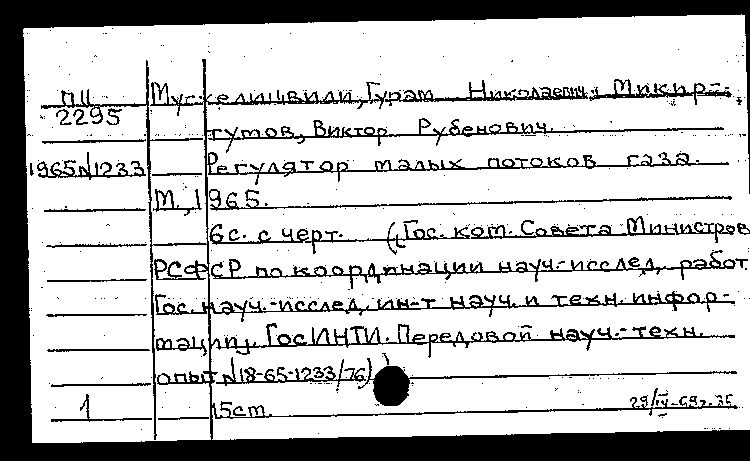 ПII Мусхелишвили, Гурам Николаевич, Микир-
2295 тумов, Виктор Рубенович.
1965N1233 Регулятор малых потоков газа.
М., 1965.
6с. с черт. (Гос. ком. Совета Министров
РСФСР по координации науч.-исслед. работ
Гос. науч.-исслед. ин-т науч. и техн. инфор-
мации. ГосИНТИ. Передовой науч.-техн.
опыт N18-65-1233/76)
1 15см.